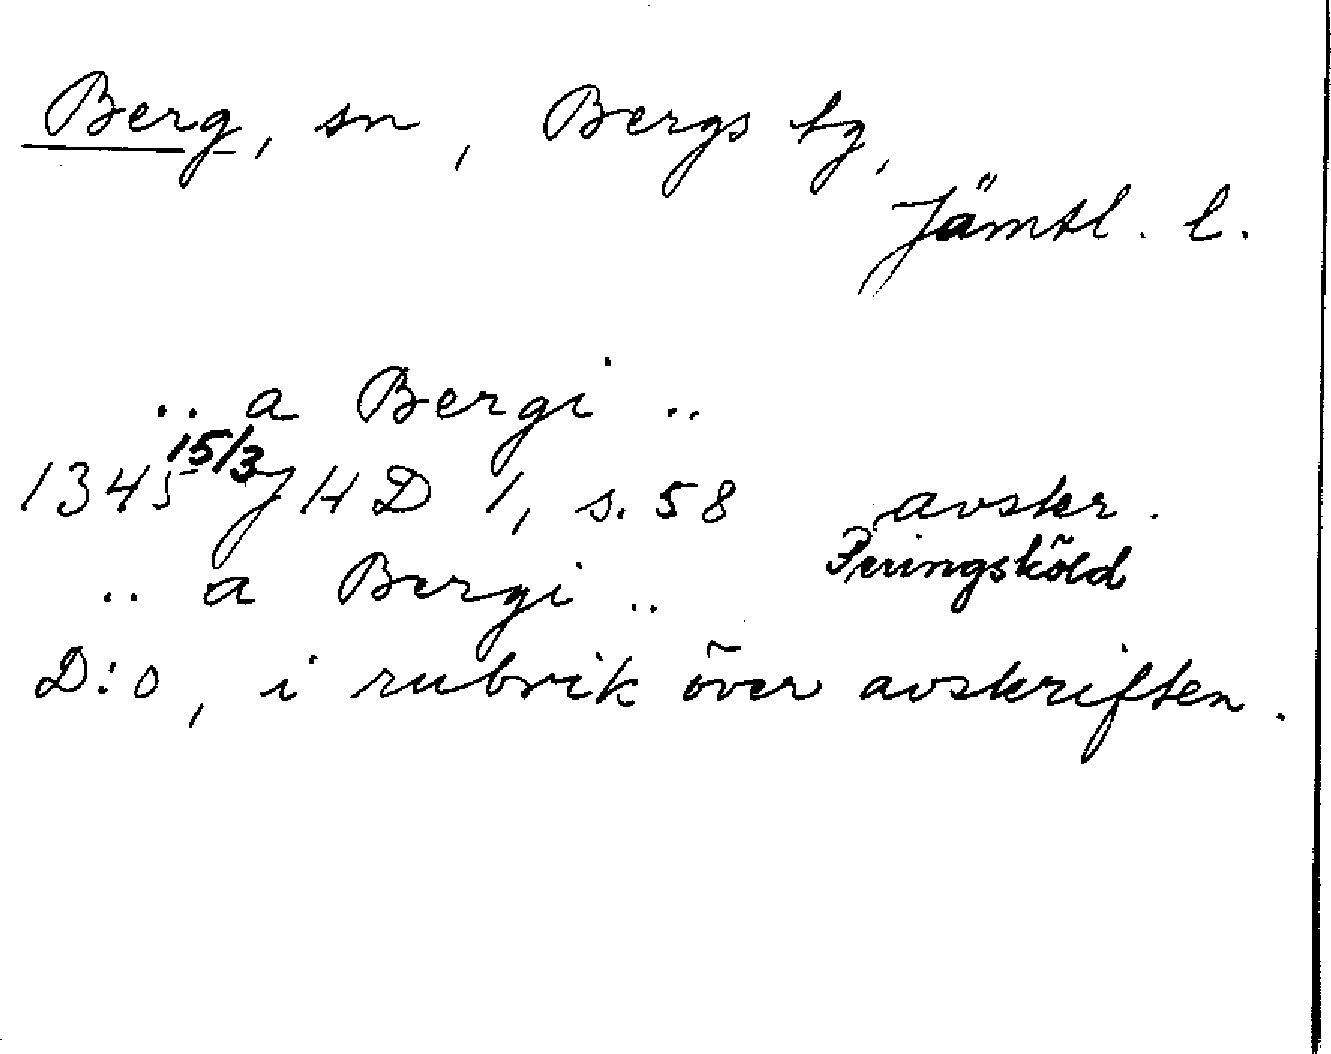 Berg, sn, Bergs tg,
Jämtl. l.
.. a Bergi ..
1345 15/3 JHD 1, s. 58 avskr.
Peringsköld
.. a Bergi ..
D:o, i rubrik över avskriften.